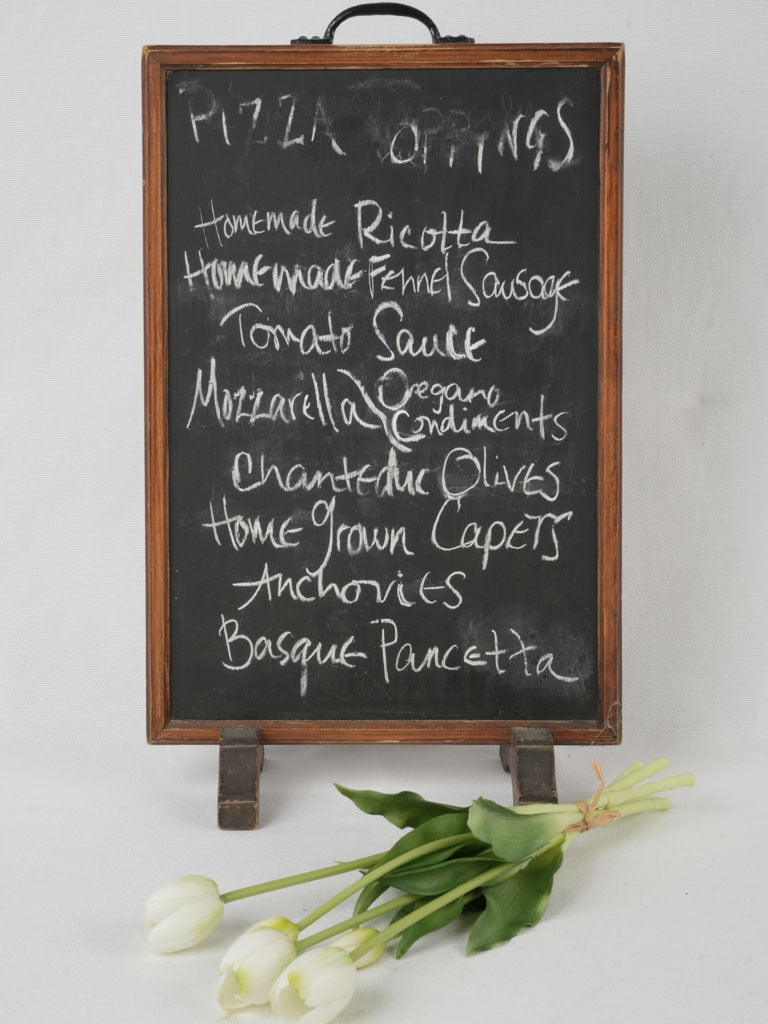 PIZZA TOPPINGS
Homemade Ricotta
Homemade Fennel Sausage
Tomato Sauce
Mozzarella Oregano
Condiments
Chanteduc Olives
Home grown Capers
Anchovies
Basque Pancetta